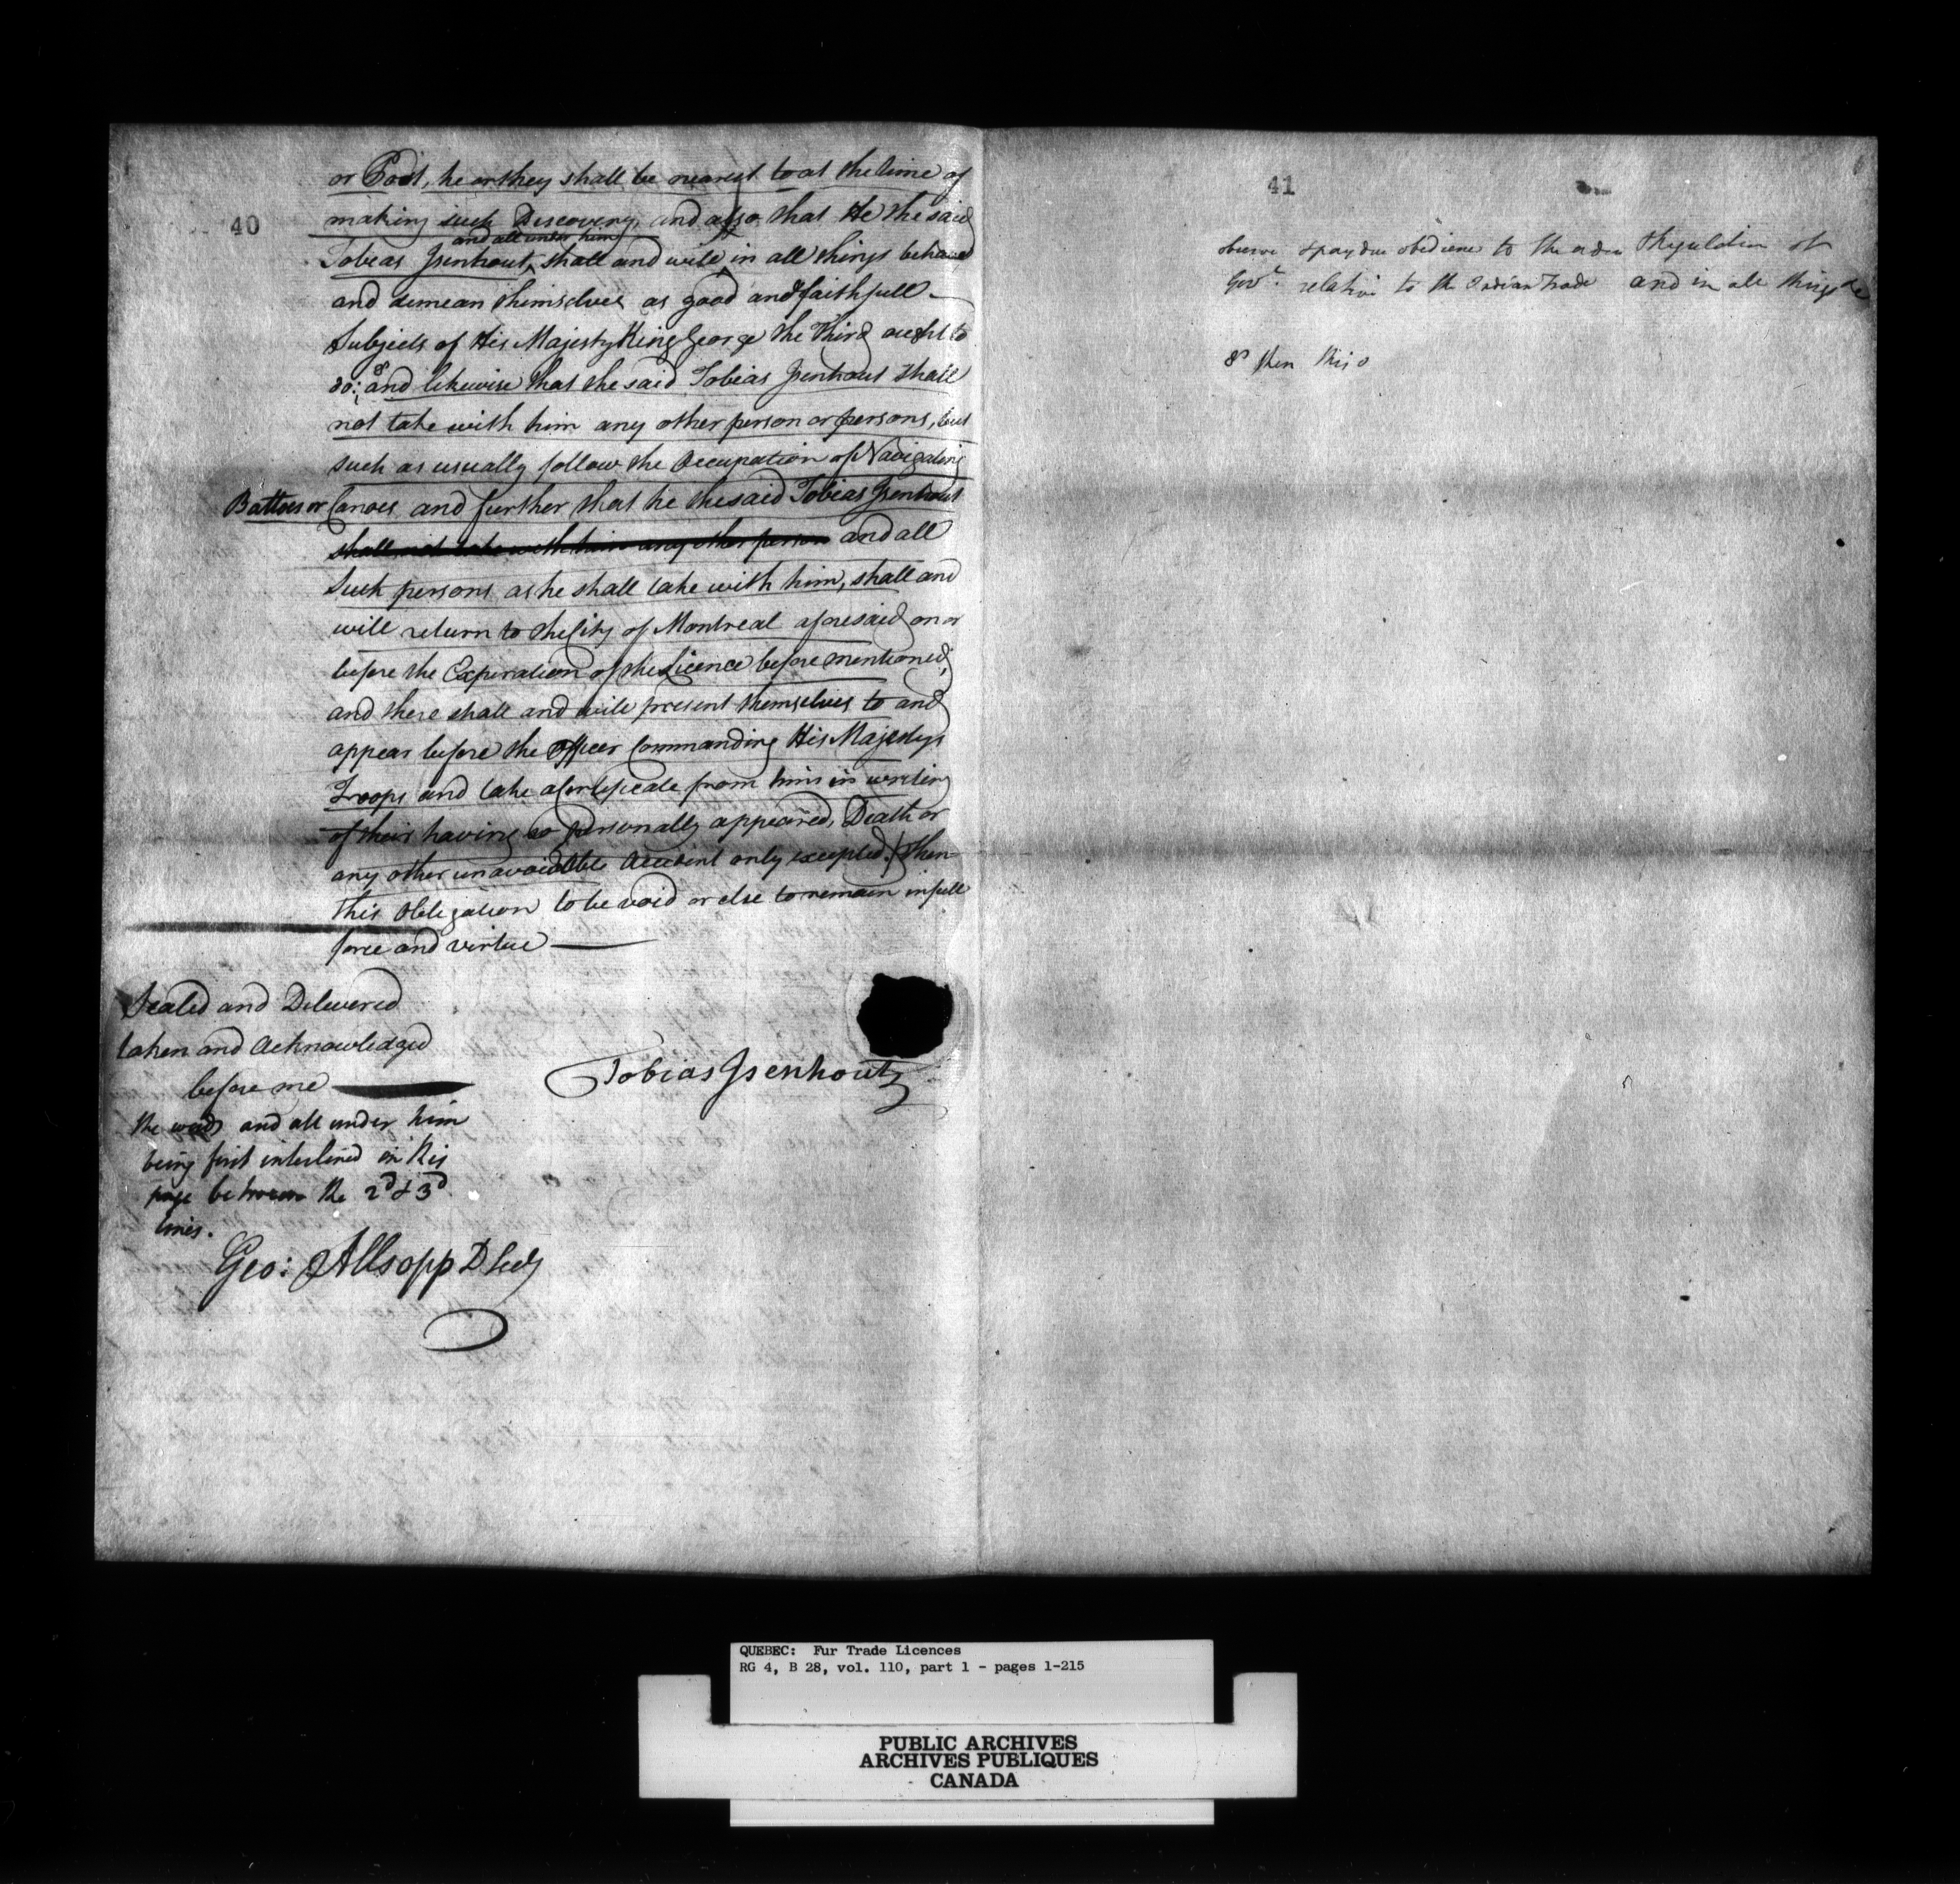 40
or Post, he or they shall be nearest to at the time of
making such Discovery, and also that He the said
and all under him
Tobias Isenhout, shall and will in all things behave
and demean themselves as good and faithfull
Subjects of His Majesty King George the Third ought to
do: & and likewise that the said Tobias Isenhout shall
not take with him any other person or persons, but
such as usually follow the Occupation of Navigating
Battoes or Canoes and further that he the said Tobias Isenhout
shall not take with him any other person and all
Such persons as he shall take with him, shall and
will return to the City of Montreal aforesaid on or
before the Expiration of the Licence before mentioned,
and there shall and will present themselves to and
appear before the Officer Commanding His Majestys
Troops and take a Certificate from him in writing
of their having so personally appeared, Death or
any other unavoidable Accident only excepted. Then
this Obligation to be void or else to remain in full
force and virtue
Sealed and Delivered
taken and Acknowledged
before me
Tobias Isenhoutz
the words and all under him
being first interlined in this
page between the 2d & 3d
lines.
Geo: Allsopp D Secy
41
observe & pay due obedience to the orders & Regulation of
Govt. relative to the Indian Trade and in all things &c
& then this o
QUEBEC: Fur Trade Licences
RG 4, B 28, vol. 110, part 1 - pages 1-215
PUBLIC ARCHIVES
ARCHIVES PUBLIQUES
CANADA